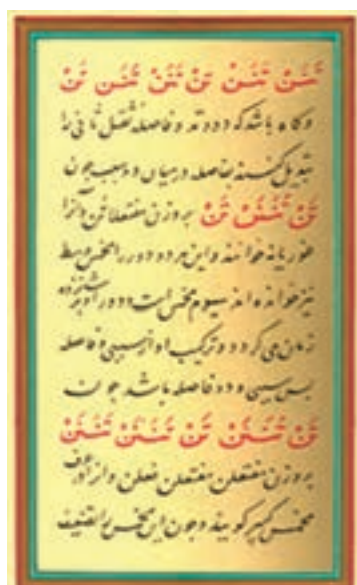 تَنَنْ تَنَنْ تَنْ تَنَنْ تَنَنْ تَنْ
و کاه باشد که دو و فاصله ثقیل ثانی را
تبدیل کنند بفاصله در میان دو سبب چون
تَنْ تَنَنَنْ تَنْ بر وزن مفتعلاتن و آنرا
خوانند و این هر دو دور را مخمس وسط
نیز خوانده اند سیوم مخمس است و دور او بر شانزده
زمان می کردد و ترکیب او از سببی و فاصله
پس سببی و دو فاصله باشد چون
تَنْ تَنَنَنْ تَنْ تَنَنَنْ تَنَنَنْ
بر وزن مفتعلن مفتعلن فعلن و
مخمس کبیر کویند و چون این مخمس را تضعیف